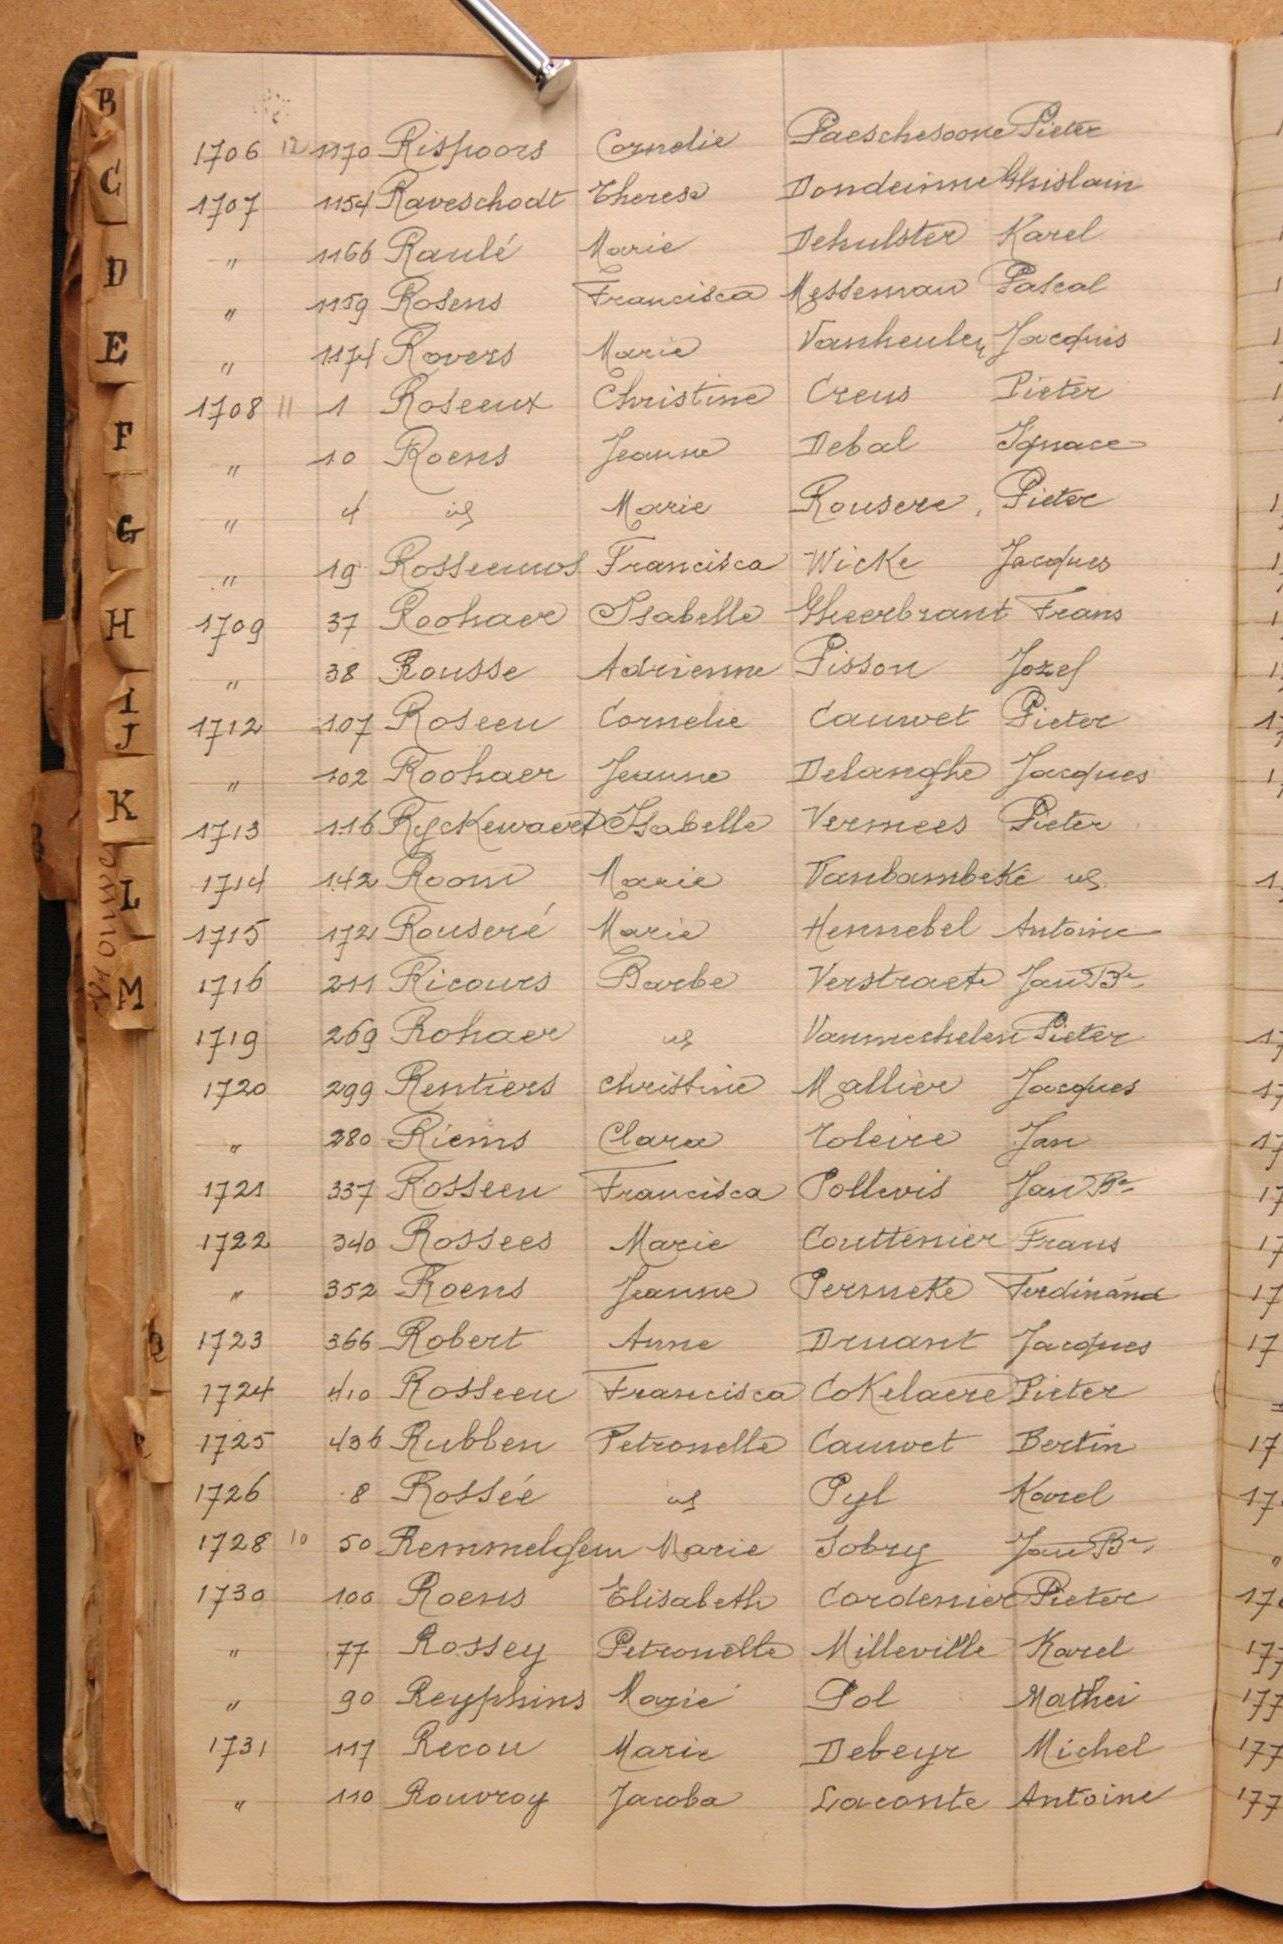 B
C
D
E
F
G
H
I
J
K
L
M
1706 12 1170 Rispoors Cornelie Paeschesoone Pieter
1707 1154 Raveschodt Theresa Dondeinne Ghislain
" 1166 Raulé Marie Dehulster Karel
" 1159 Rosens Francisca Messeman Pascal
" 1174 Rovers Marie Vanheulen Jacques
1708 11 1 Roseeux Christine Creus Pieter
" 10 Roens Jeanne Debal Ignace
" 4 id Marie Rousere, Pieter
" 19 Rosseeuws Francisca Wicke Jacques
1709 37 Roohaer Isabelle Gheerbrant Frans
" 38 Rousse Adrienne Pisson Jozef
1712 107 Roseeu Cornelie Cauwet Pieter
" 102 Roohaer Jeanne Delanghe Jacques
1713 116 Ryckewaert Isabelle Vermees Pieter
1714 142 Room Marie Vanbambeke id
1715 172 Rouseré Marie Hennebel Antoine
1716 211 Ricours Barbe Verstraete Jan Bte
1719 269 Rohaer id Vanmechelen Pieter
1720 299 Rentiers Christine Mallier Jacques
" 280 Riems Clara Toleire Jan
1721 337 Rosseeu Francisca Pollevis Jan Bte
1722 340 Rossees Marie Couttenier Frans
" 352 Roens Jeanne Perneke Ferdinand
1723 366 Robert Anne Druant Jacques
1724 410 Rosseeu Francisca Cokelaere Pieter
1725 436 Rubben Petronelle Cauwet Bertin
1726 8 Rossée id Pyl Karel
1728 10 50 Remmelgem Marie Sobry Jan Bte
1730 100 Roens Elisabeth Cordenier Pieter
" 77 Rossey Petronelle Milleville Karel
" 90 Reyphins Marie Pol Mathei
1731 117 Recou Marie Debeyr Michel
" 110 Rouvroy Jacoba Laconte Antoine